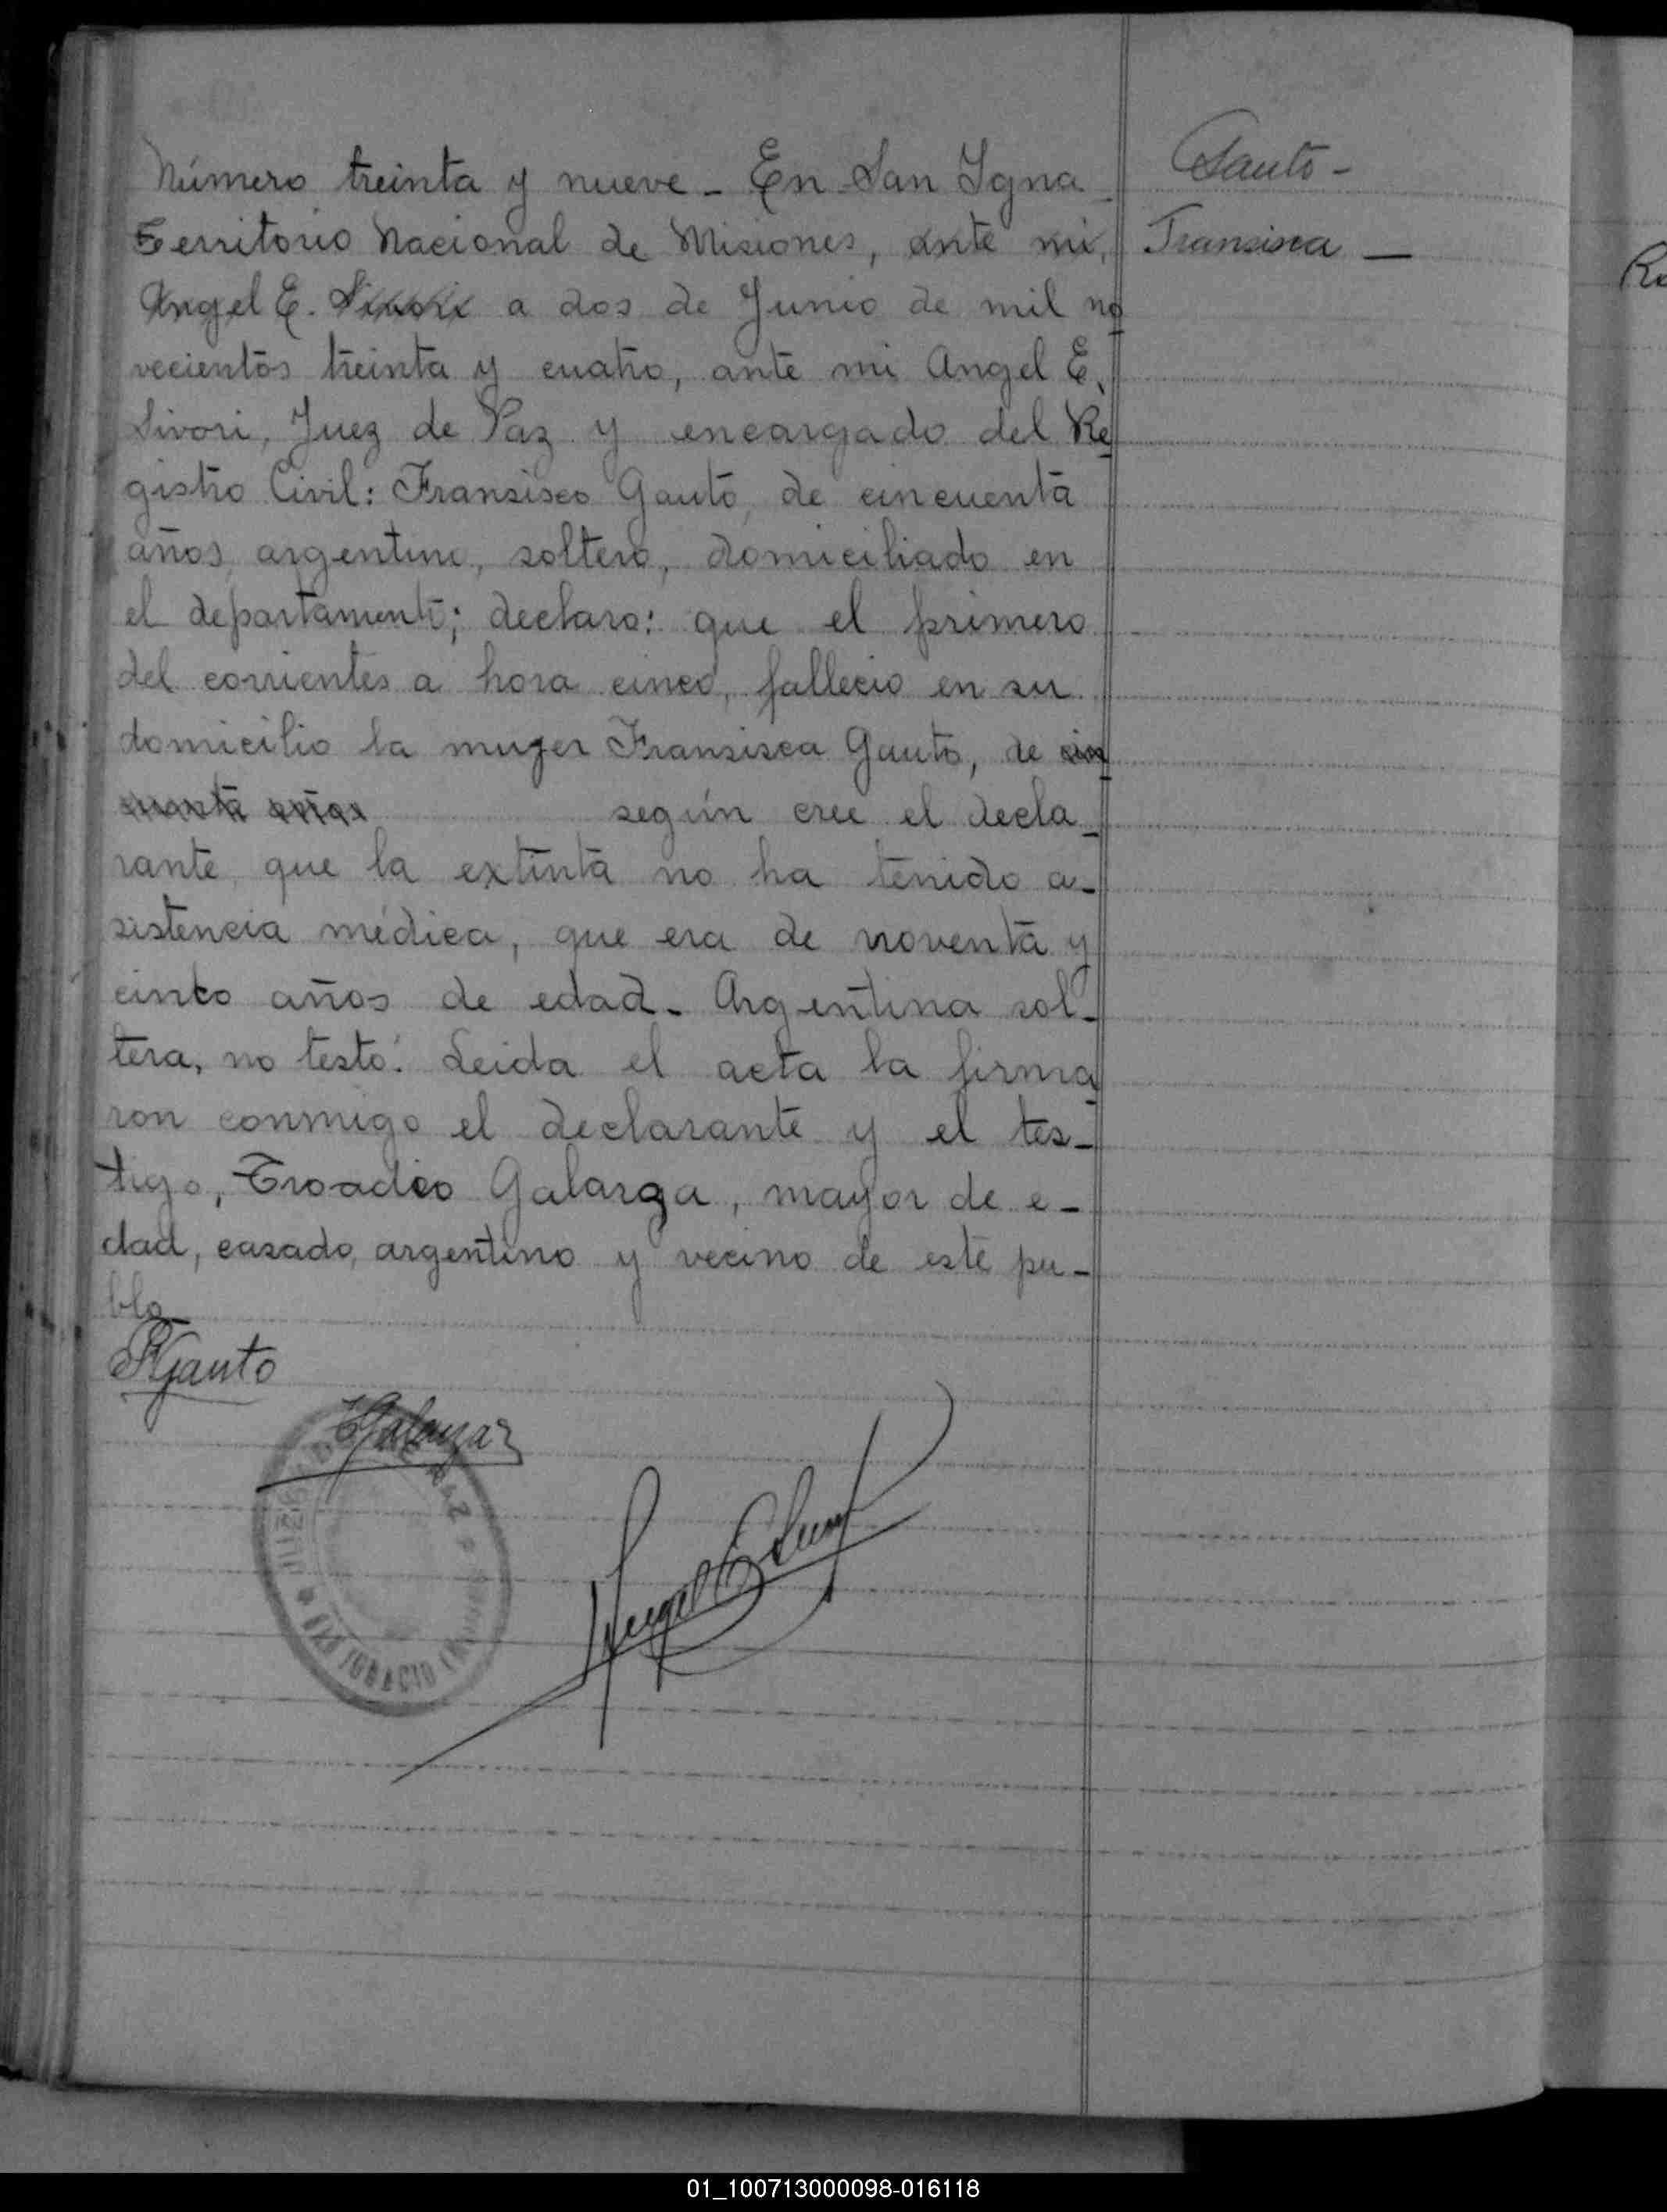 Gauto -
Fransisca —
Número treinta y nueve - En San Igna-
Territorio Nacional de Misiones, ante mi,
Angel E. Sivori a dos de Junio de mil no
vecientos treinta y cuatro, ante mi Angel E.
Sivori, Juez de Paz y encargado del Re
gistro Civil: Fransisco Gauto, de cincuenta
años, argentino, soltero, domiciliado en
el departamento; declaro: que el primero
del corrientes a hora cinco, fallecio en su
domicilio la mujer Fransisca Gauto, de cin
cuenta años según cree el decla-
rante, que la extinta no ha tenido a-
sistencia médica, que era de noventa y
cinco años de edad - Argentina sol-
tera, no testó. Leida el acta la firma
ron conmigo el declarante y el tes-
tigo, Troadio Galarza, mayor de e-
dad, casado, argentino y vecino de este pu-
blo
F Gauto
TGalarza
JUZGADO DE PAZ
SAN IGNACIO
Angel E Sivori
Ro
01_100713000098-016118